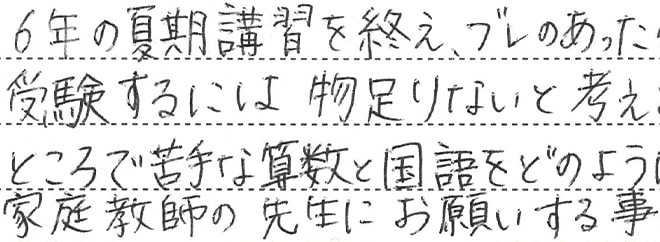 6年の夏期講習を終え、ブレのあった
受験するには物足りないと考え
ところで苦手な算数と国語をどのように
家庭教師の先生にお願いする事